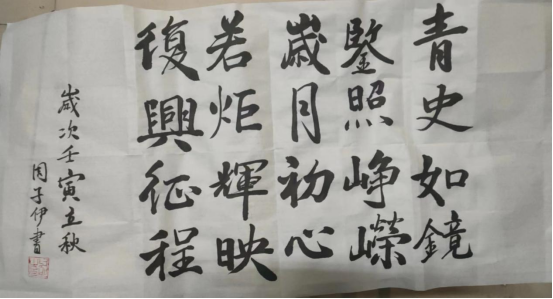 青史如鏡
鍳照崢嶸
歲月初心
若炬輝映
復興征程
歲次壬寅立秋
周子伊書